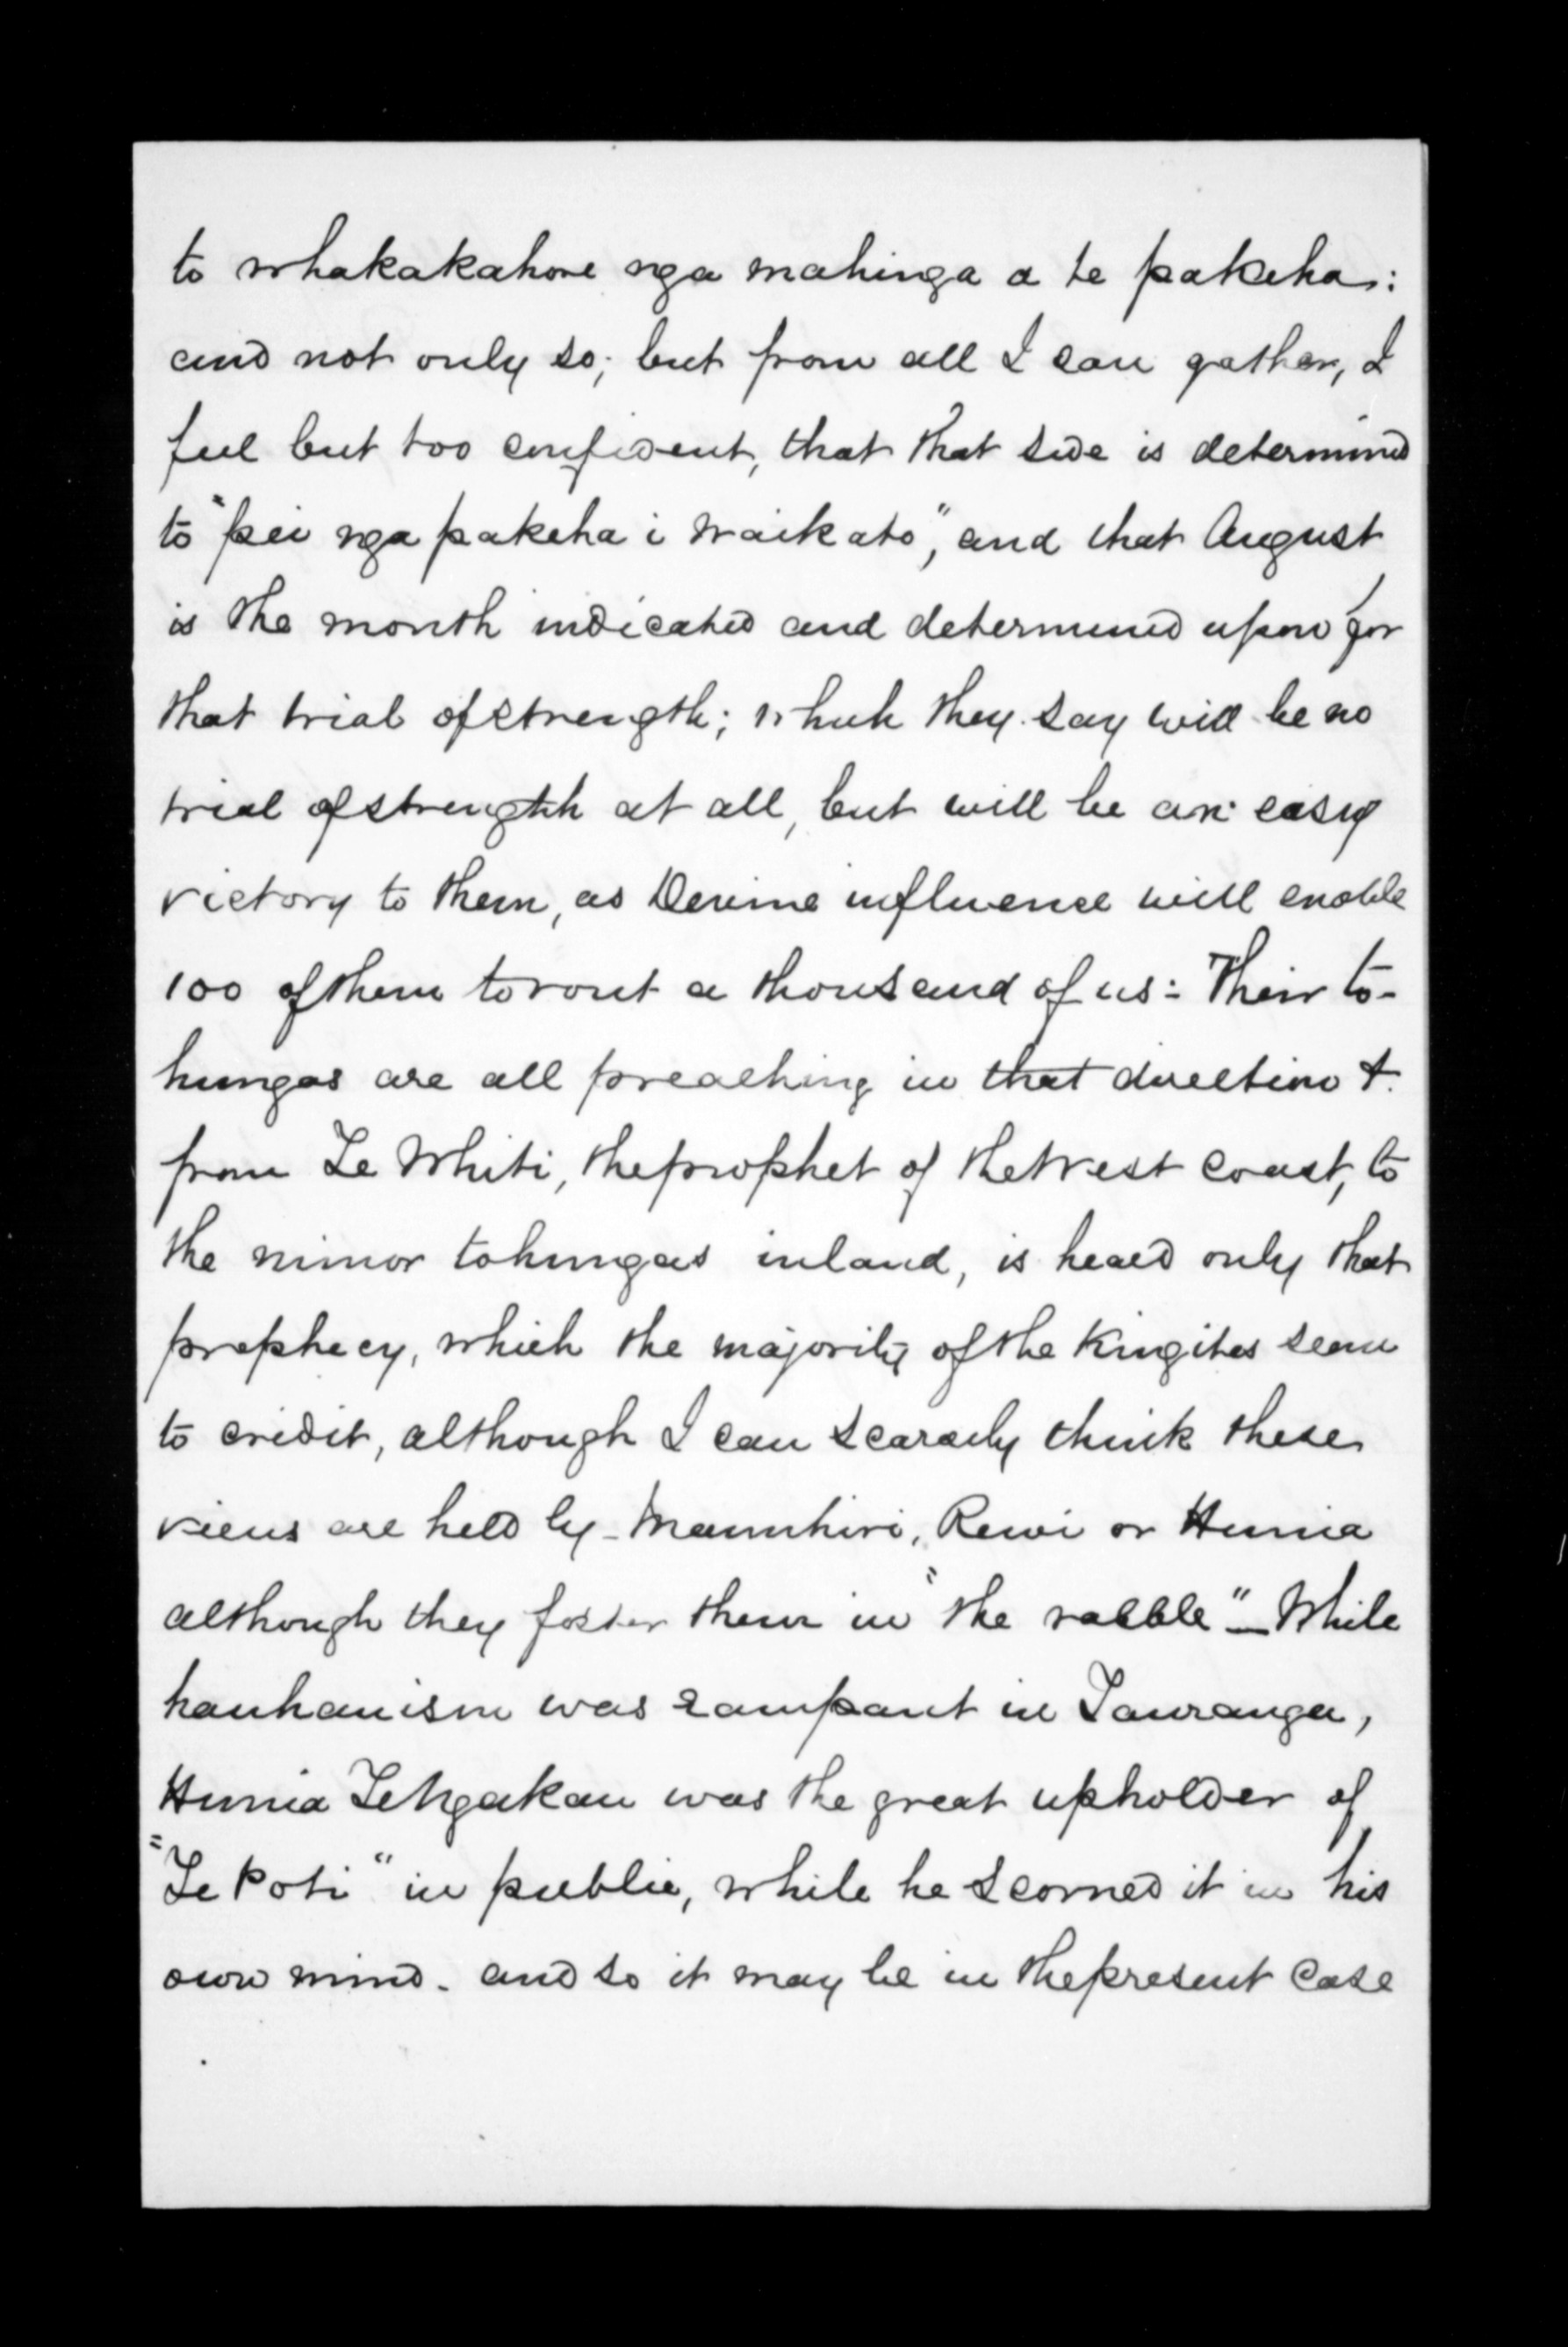 to whakakahore nga mahinga a te pakeha:
and not only so; but from all I can gather, I
feel but too confident, that that side is determined
to "pei nga pakeha i Waikato", and that August
is the month indicated and determined upon for
that trial of strength; which they say will be no
trial of strength at all, but will be an easy
victory to them, as Devine influence will enable
100 of them to rout a thousand of us: Their to-
hungas are all preaching in that direction &
from Te Whiti, the prophet of the West Coast, to
the minor tohungas inland, is heard only that
prophecy, which the majority of the Kingites seem
to credit, although I can scarcely think these
views are held by Manuhiri, Rewi or Hunia
although they foster them in "the rabble" — While
hauhauism was rampant in Tauranga,
Hunia Te Ngakau was the great upholder of
"Te Poti" in public, while he scorned it in his
own mind - and so it may be in the present case